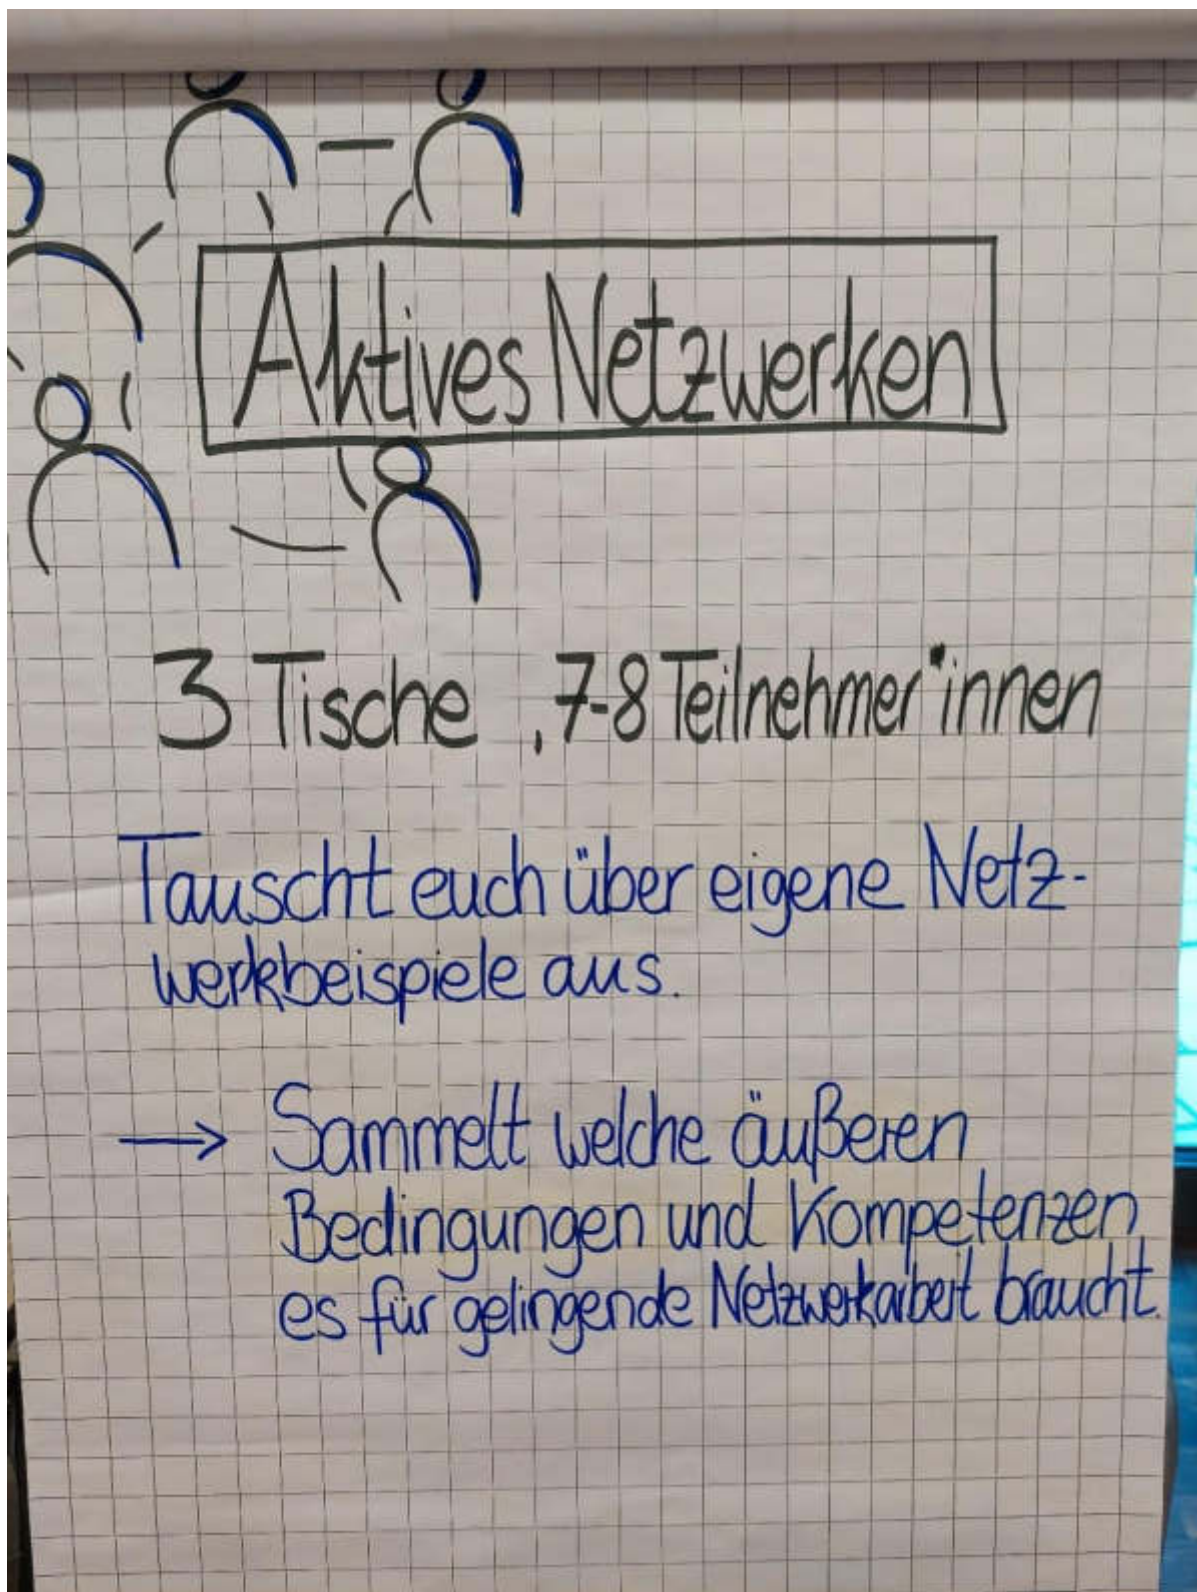 Aktives Netzwerken
3 Tische , 7-8 Teilnehmer*innen
Tauscht euch über eigene Netz-
werkbeispiele aus.
→ Sammelt welche äußeren
Bedingungen und Kompetenzen
es für gelingende Netzwerkarbeit braucht.